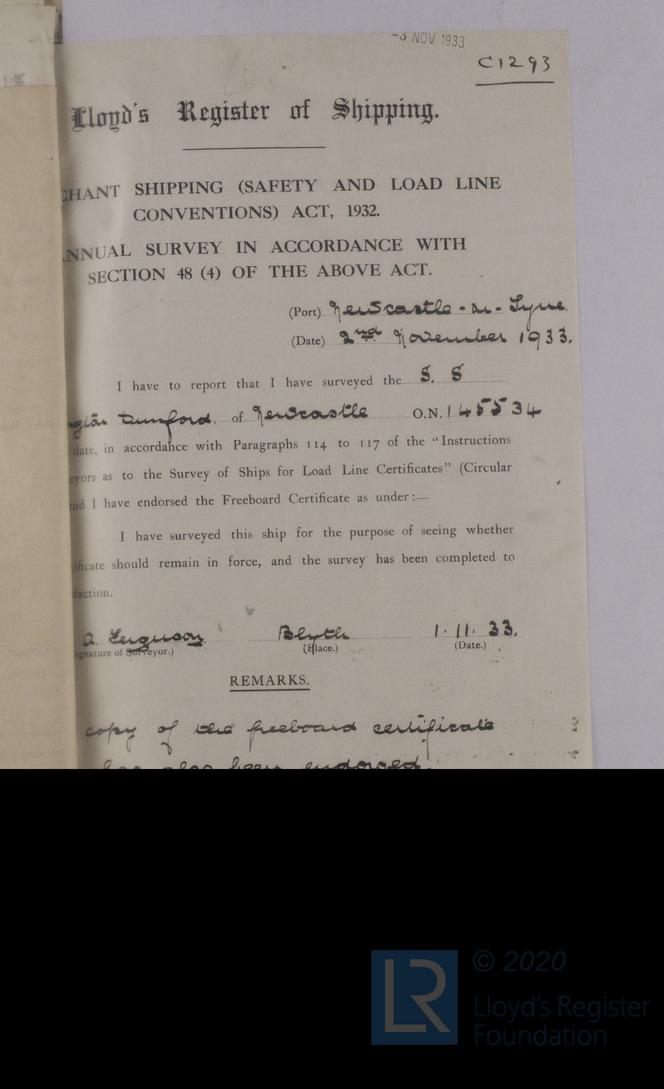 -3 NOV 1933
C1293
Lloyd's Register of Shipping.
CHANT SHIPPING (SAFETY AND LOAD LINE
CONVENTIONS) ACT, 1932.
ANNUAL SURVEY IN ACCORDANCE WITH
SECTION 48 (4) OF THE ABOVE ACT.
(Port) Newcastle-on-Tyne.
(Date) 2nd November 1933.
I have to report that I have surveyed the S. S
Dunford, of Newcastle O.N. 145534
date, in accordance with Paragraphs 114 to 117 of the "Instructions
eyors as to the Survey of Ships for Load Line Certificates" (Circular
nd I have endorsed the Freeboard Certificate as under:—
I have surveyed this ship for the purpose of seeing whether
ificate should remain in force, and the survey has been completed to
faction.
A. Ferguson Blyth 1.11.33.
ignature of Surveyor.) (Place.) (Date.)
REMARKS.
copy of the freeboard certificate
has also been endorsed.
LR
© 2020
Lloyd's Register
Foundation